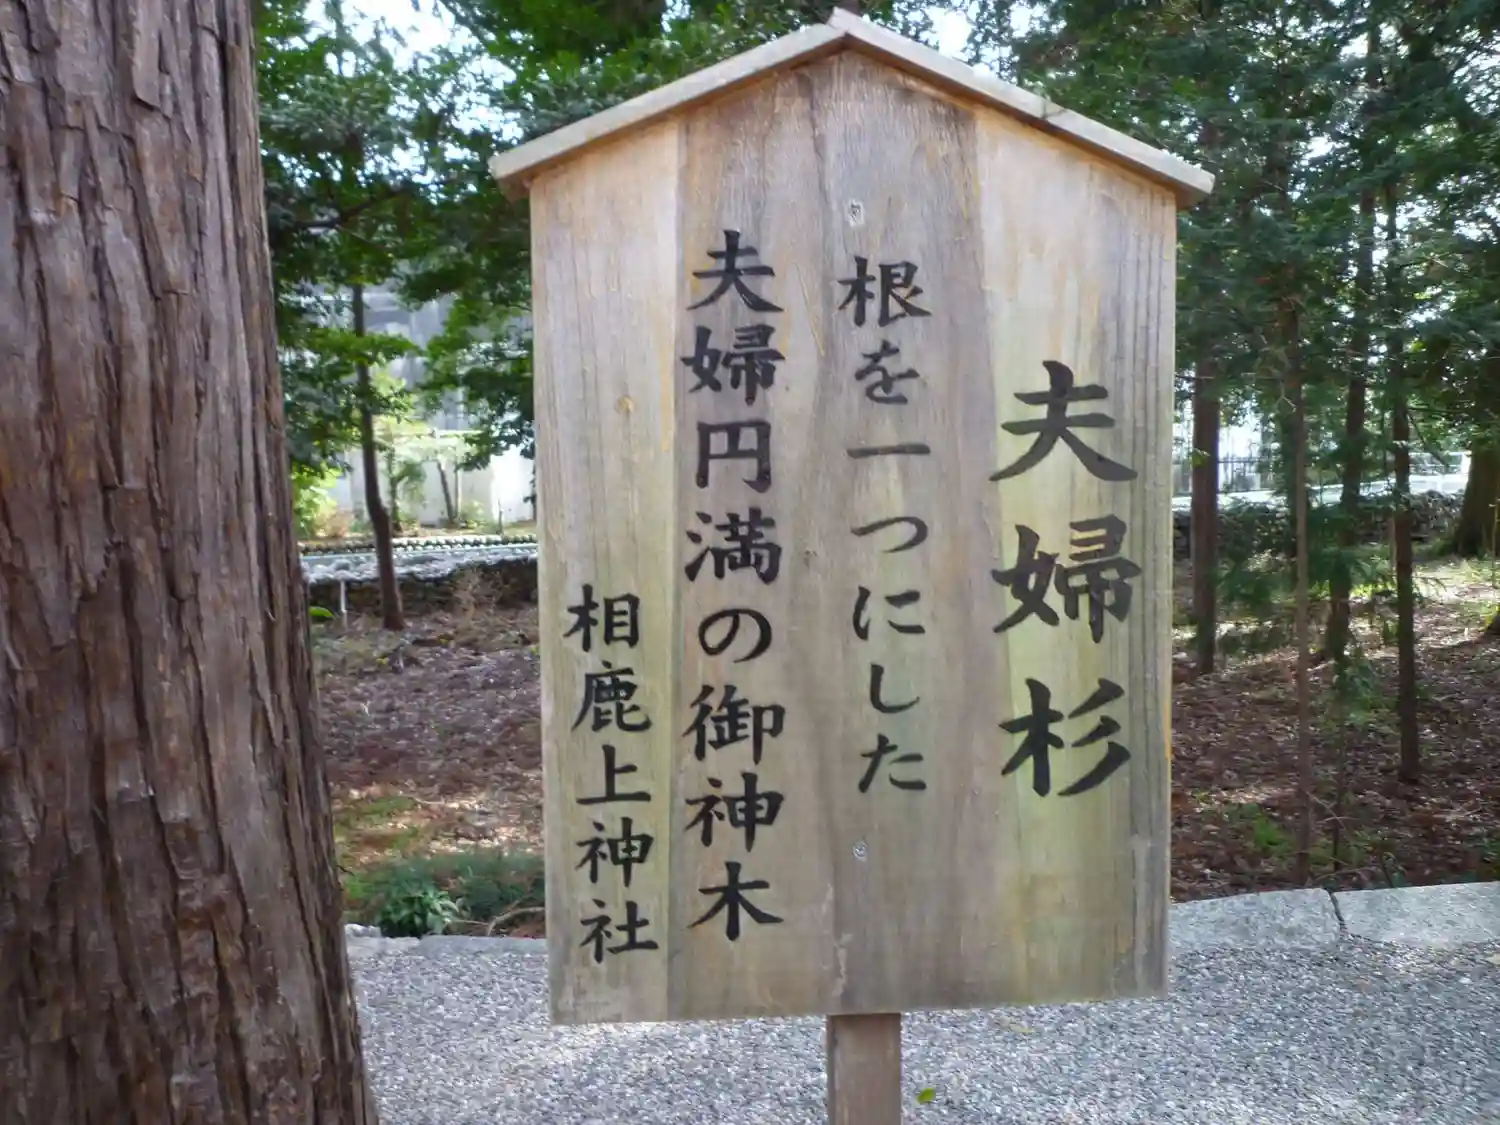 夫婦杉
根を一つにした
夫婦円満の御神木
相鹿上神社